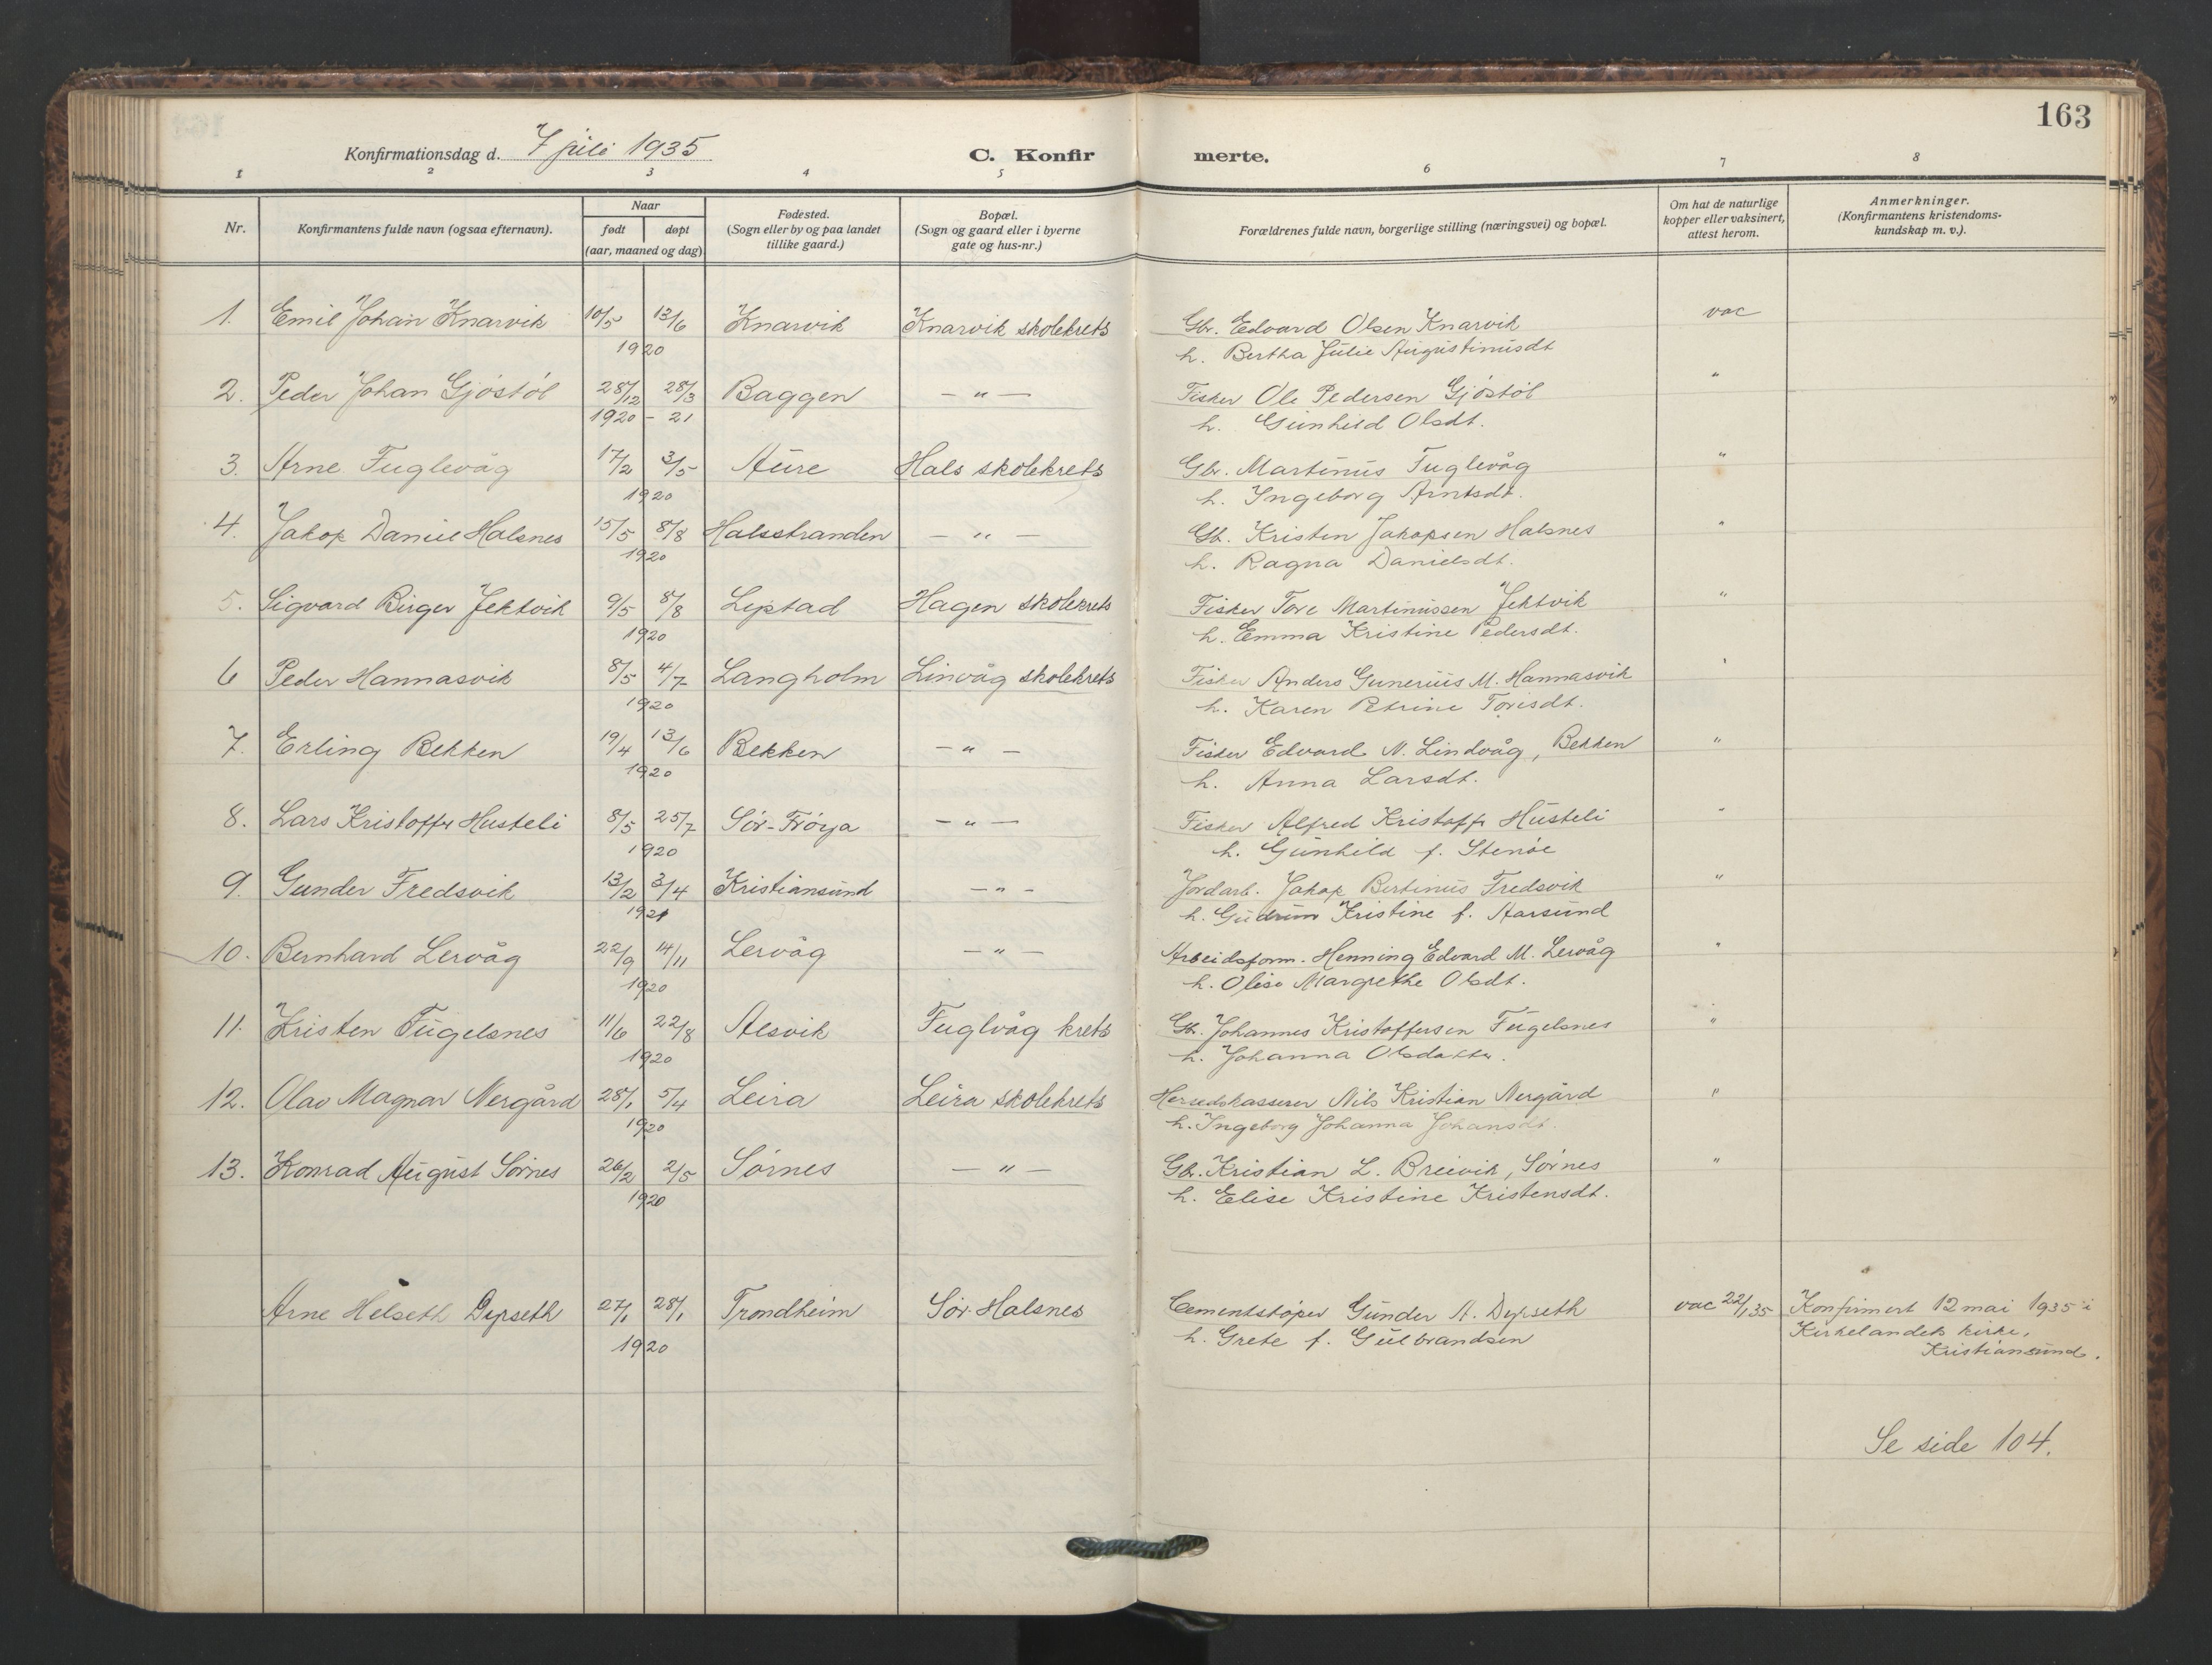 163
Konfirmationsdag d. 7 juli 1935 C. Konfirmerte.
1 2 3 4 5 6 7 8
Nr. Konfirmantens fulde navn (ogsaa efternavn). Naar født døpt (aar, maaned og dag) Fødested. (Sogn eller by og paa landet tillike gaard.) Bopæl. (Sogn og gaard eller i byerne gate og hus-nr.) Forældrenes fulde navn, borgerlige stilling (næringsvei) og bopæl. Om hat de naturlige kopper eller vaksinert, attest herom. Anmerkninger. (Konfirmantens kristendoms-kundskap m. v.).
1. Emil Johan Knarvik 10/5 13/6 Knarvik Knarvik skolekrets Gbr. Edvard Olsen Knarvik vac
1920 h. Bertha Julie Augustinusdt
2. Peder Johan Gjøstøl 28/12 28/3 Baggen — " — Fisker Ole Pedersen Gjøstøl "
1920 - 21 h. Gunhild Olsdt.
3. Arne Fuglevåg 17/2 3/5 Aure Hals skolekrets Gbr. Martinus Fuglevåg "
1920 h. Ingeborg Arntsdt.
4. Jakop Daniel Halsnes 15/5 8/8 Halsstranden — " — Gb. Kristen Jakopsen Halsnes "
1920 h. Ragna Danielsdt.
5. Sigvard Birger Jektvik 9/5 8/8 Leptad Hagen skolekrets Fisker Tore Martinussen Jektvik "
1920 h. Emma Kristine Pedersdt.
6 Peder Hannasvik 8/5 4/7 Langholm Linvåg skolekrets Fisker Anders Gunerius M. Hannasvik "
1920 h. Karen Petrine Torisdt.
7. Erling Bekken 19/4 13/6 Bekken — " — Fisker Edvard N. Lindvåg, Bekken "
1920 h. Anna Larsdt.
8. Lars Kristoffer Husteli 8/5 25/7 Sør-Frøya — " — Fisker Alfred Kristoffr Husteli "
1920 h. Gunhild f. Stenøe
9. Gunder Fredsvik 13/2 3/4 Kristiansund — " — Jordarb. Jakop Bertinus Fredsvik "
1921 h. Gudrun Kristine f. Aarsund
10. Bernhard Lervåg 22/9 14/11 Lervåg — " — Arbeidsform. Henning Edvard M. Lervåg "
1920 h. Olise Margrethe Olsdt.
11. Kristen Fugelsnes 11/6 22/8 Alsvik Fuglvåg krets Gb. Johannes Kristoffersen Fugelsnes "
1920 h. Johanna Olsdatter.
12. Olav Magnar Nergård 28/1 5/4 Leira Leira skolekrets Herredskasserer Nils Kristian Nergård "
1920 h. Ingeborg Johanna Johansdt.
13. Konrad August Sørnes 26/2 2/5 Sørnes — " — Gbr. Kristian L. Breivik, Sørnes "
1920 h. Elise Kristine Kristensdt.
Arne Helseth Dypseth 27/1 28/1 Trondheim Sør-Halsnes Cementstøper Gunder A. Dypseth vac 22/1 35 Konfirmert 12 mai 1935 i
1920 h. Grete f. Gulbrandsen Kirkelandets kirke,
Kristiansund.
Se side 104.